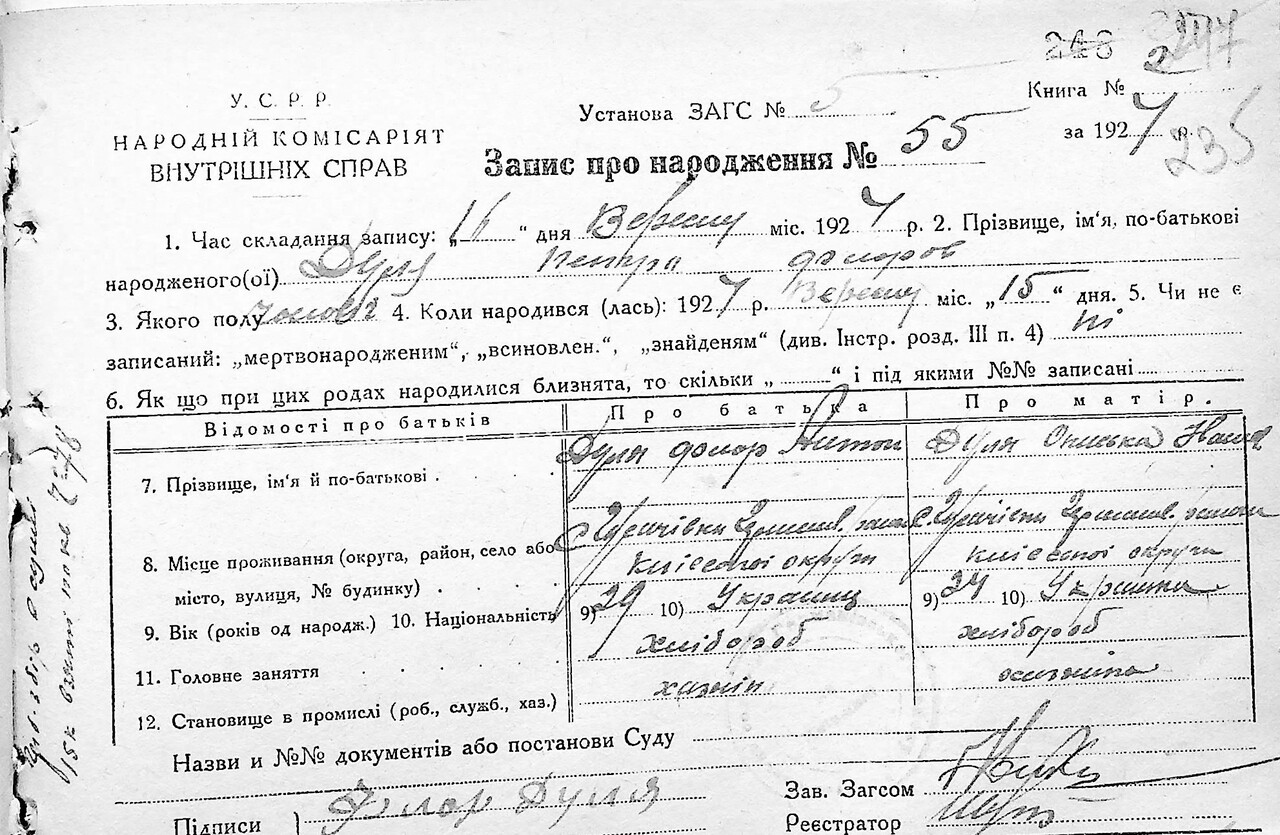 248 247
У. С. Р. Р.
НАРОДНІЙ КОМІСАРІЯТ
ВНУТРІШНІХ СПРАВ
Установа ЗАГС № 5
Книга № 2
за 1927 р.
235
Запис про народження № 55
1. Час складання запису: „16“ дня Вересню міс. 1927 р. 2. Прізвище, ім'я, по-батькові
народженого(ої) Дуля Петра Флоров
3. Якого полу 4. Коли народився (лась): 1927 р. Вересню міс. „15“ дня. 5. Чи не є
записаний: „мертвонародженим“, „всиновлен.“, „знайденям“ (див. Інстр. розд. III п. 4) ні
6. Як що при цих родах народилися близнята, то скільки „ “ і під якими №№ записані
Відомості про батьків Про батька Про матір.
7. Прізвище, ім'я й по-батькові . Дуля Флор Антон Дуля Ониська
8. Місце проживання (округа, район, село або
місто, вулиця, № будинку) . київської округи київської округи
9. Вік (років од народж.) 10. Національність 9) 29 10) Українц 9) 24 10) Українка
11. Головне заняття хлібороб хлібороб
12. Становище в промислі (роб., служб., хаз.) хазяін
Назви и №№ документів або постанови Суду
Зав. Загсом
Підписи } Флор Дуля
Реєстратор